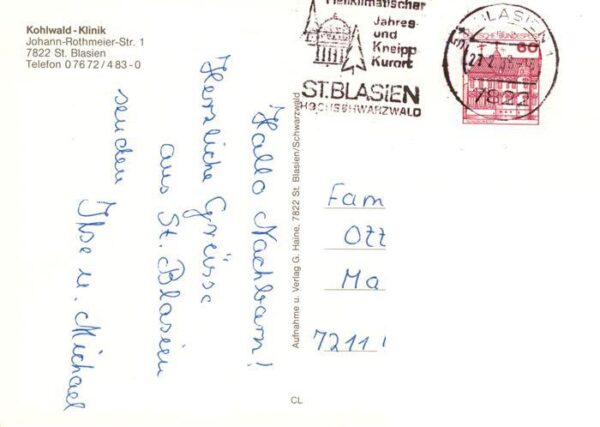 Kohlwald - Klinik
Johann-Rothmeier-Str. 1
7822 St. Blasien
Telefon 0 76 72 / 4 83 - 0
Heilklimatischer
Jahres-
und
Kneipp
Kurort
ST. BLASIEN
HOCHSCHWARZWALD
ST. BLASIEN 1
7822
60
Hallo Nachbarn!
Herzliche Grüsse
aus St. Blasien
senden
Ilse u. Michael
Aufnahme u. Verlag G. Haine, 7822 St. Blasien/Schwarzwald
Fam
Ott
Ma
7211
CL